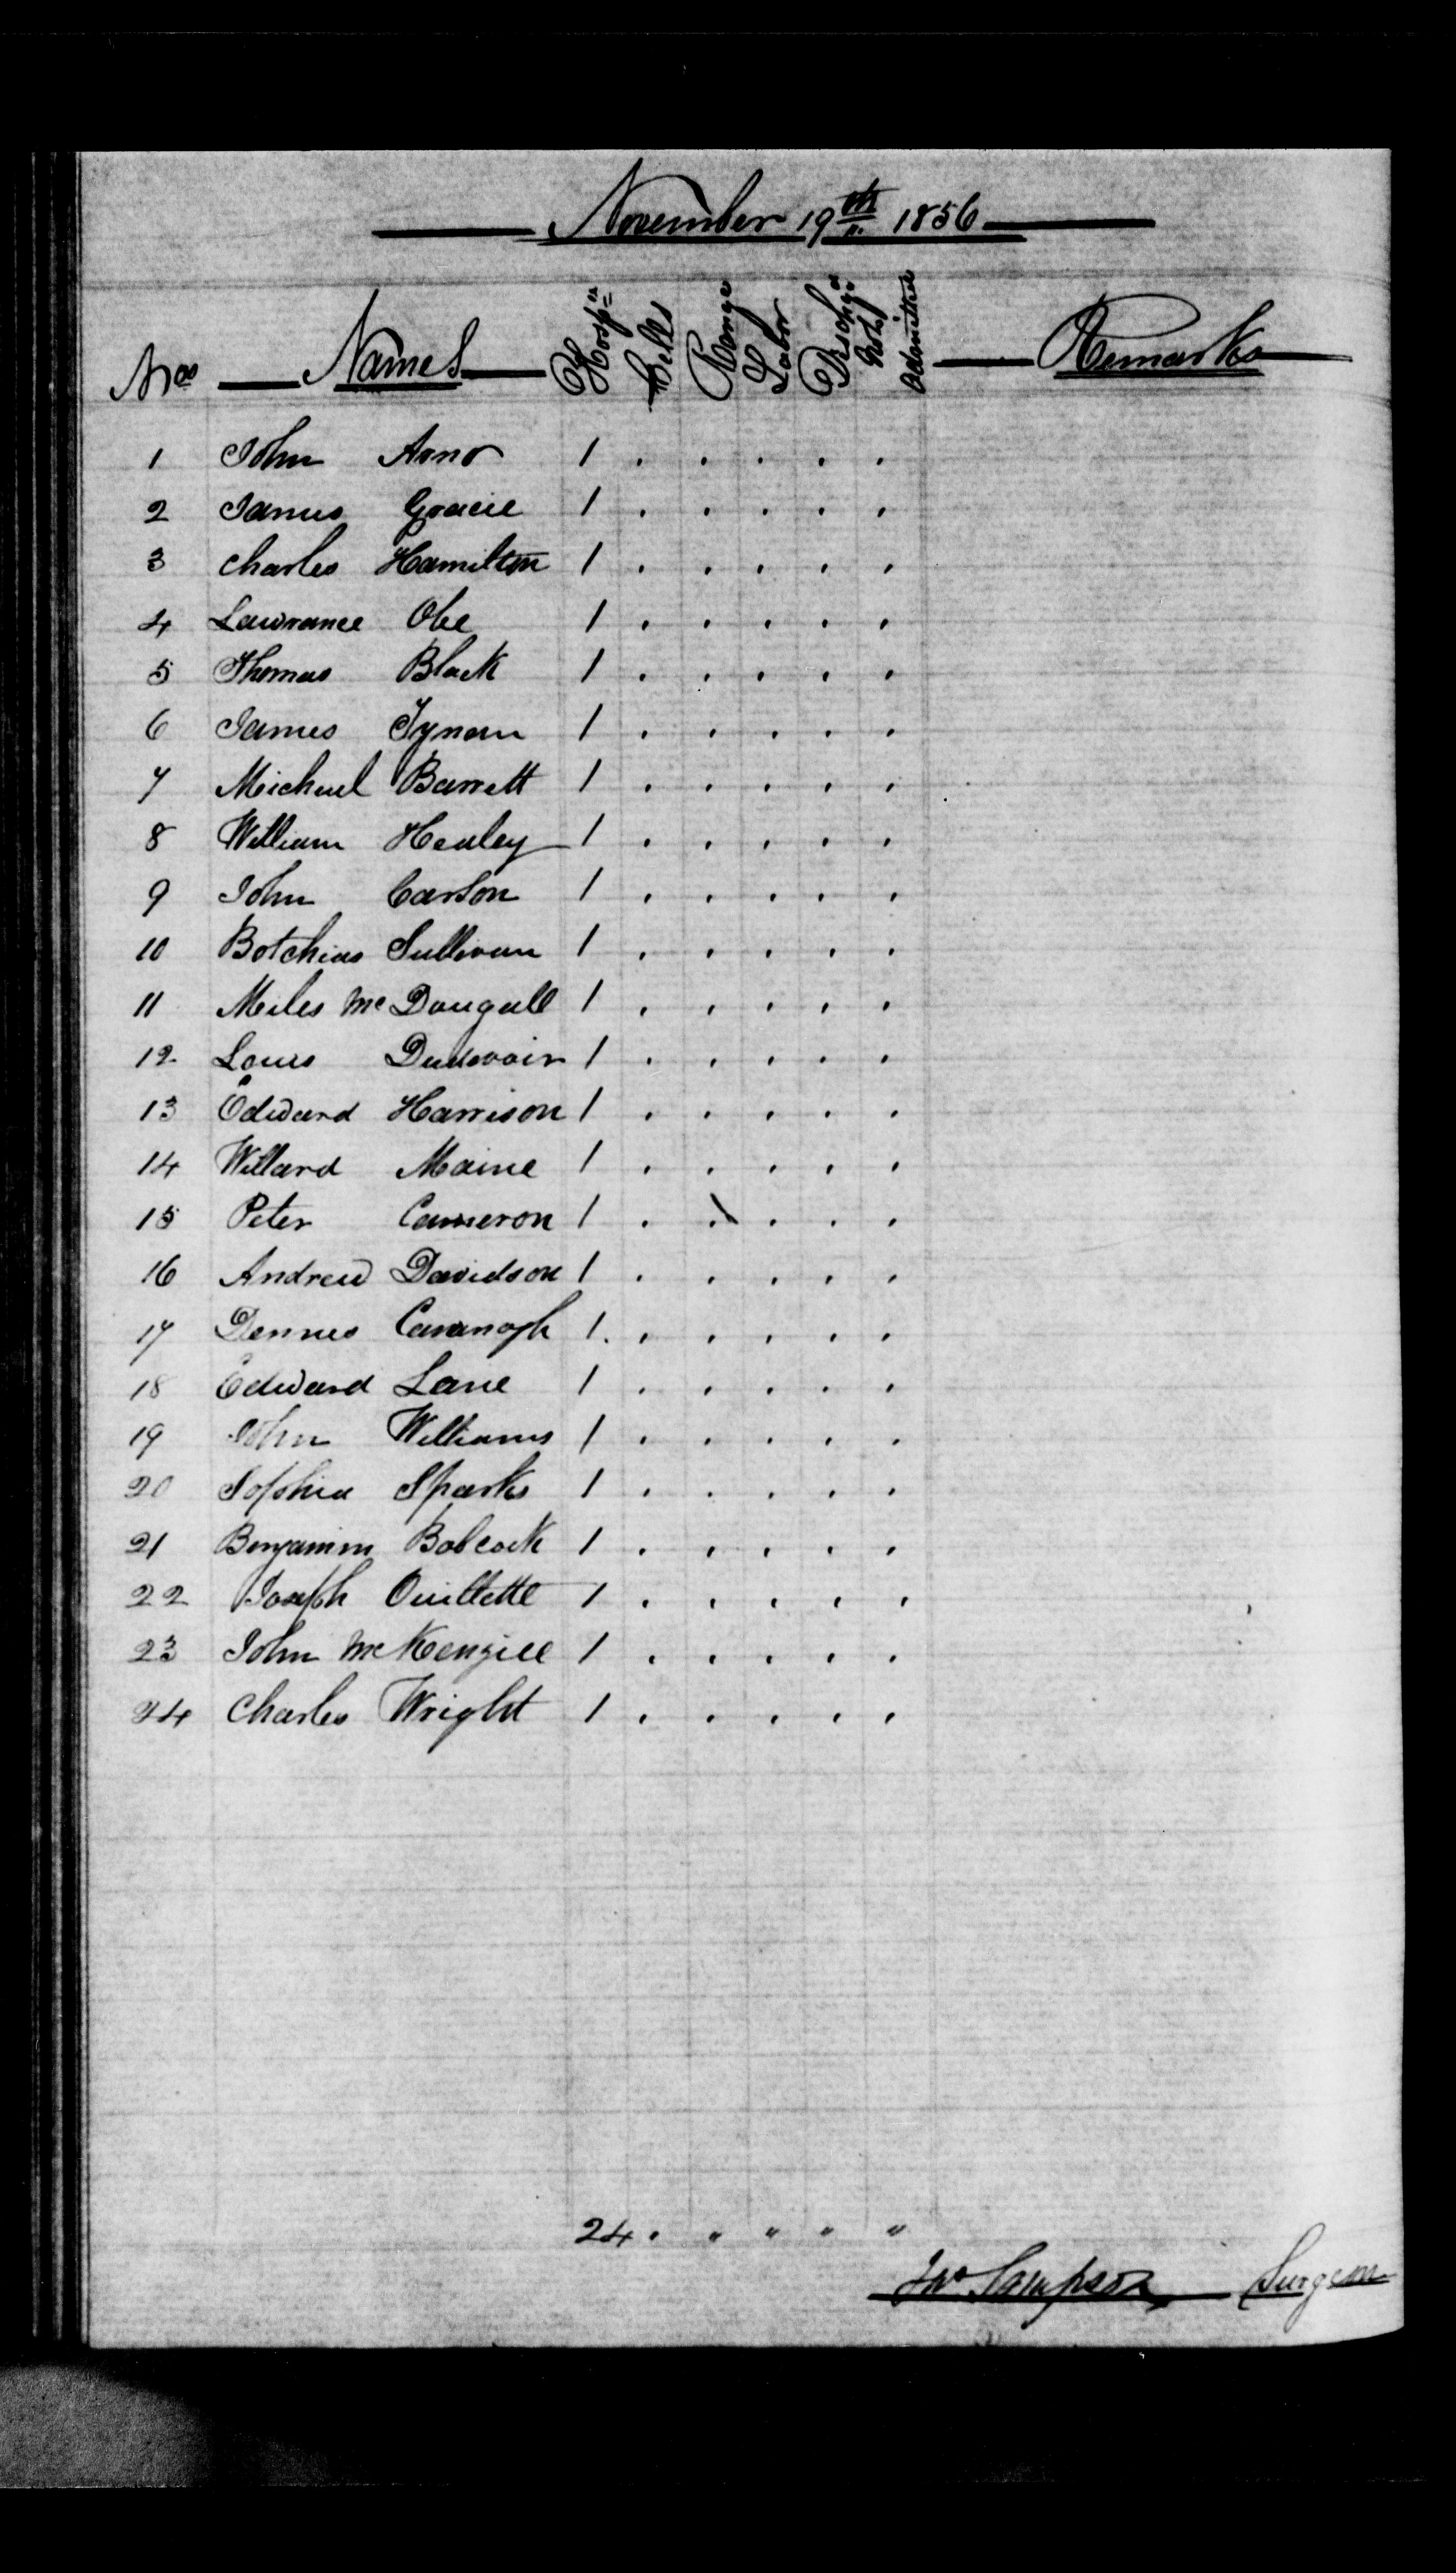 November 19th 1856
Nos Names Hospl Cells Range Labor Dischgd Not Admitted Remarks
1 John Arno 1 . . . . .
2 James Gracie 1 . . . . .
3 Charles Hamilton 1 . . . . .
4 Lawrance Obe 1 . . . . .
5 Thomas Black 1 . . . . .
6 James Tynan 1 . . . . .
7 Michael Barrett 1 . . . . .
8 William Healey 1 . . . . .
9 John Carson 1 . . . . .
10 Botchias Sullivan 1 . . . . .
11 Miles Mc Dougall 1 . . . . .
12 Louis 1 . . . . .
13 Edward Harrison 1 . . . . .
14 Willard Maine 1 . . . . .
15 Peter Cameron 1 . . . . .
16 Andrew Davidson 1 . . . . .
17 Dennis Cavanagh 1 . . . . .
18 Edward Lane 1 . . . . .
19 John Williams 1 . . . . .
20 Sophia Sparks 1 . . . . .
21 Benjamin Babcock 1 . . . . .
22 Joseph Ouillette 1 . . . . .
23 John Mc Kenziee 1 . . . . .
24 Charles Wright 1 . . . . .
24 . " " " "
Jas Sampson Surgeon